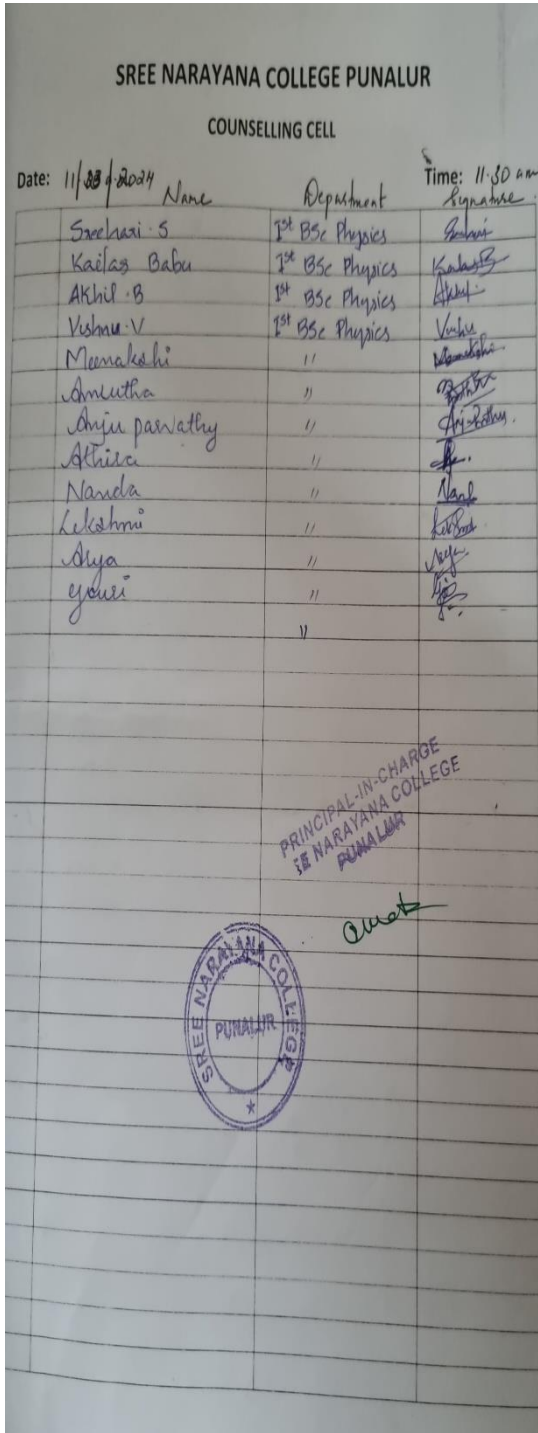 SREE NARAYANA COLLEGE PUNALUR
COUNSELLING CELL
Date: 11/ 2024 Time: 11.30 am
Name Department Signature
Sreehari. S 1st BSc Physics
Kailas Babu 1st BSc Physics
Akhil. B 1st BSc Physics Akhil
Vishnu. V 1st BSc Physics Vishnu
Meenakshi " Meenakshi
Amrutha "
Anju parvathy "
Athira "
Nanda "
Lekshmi "
Arya " Arya
gouri "
"
PRINCIPAL-IN-CHARGE
EE NARAYANA COLLEGE
PUNALUR
SREE NARAYANA COLLEGE
PUNALUR